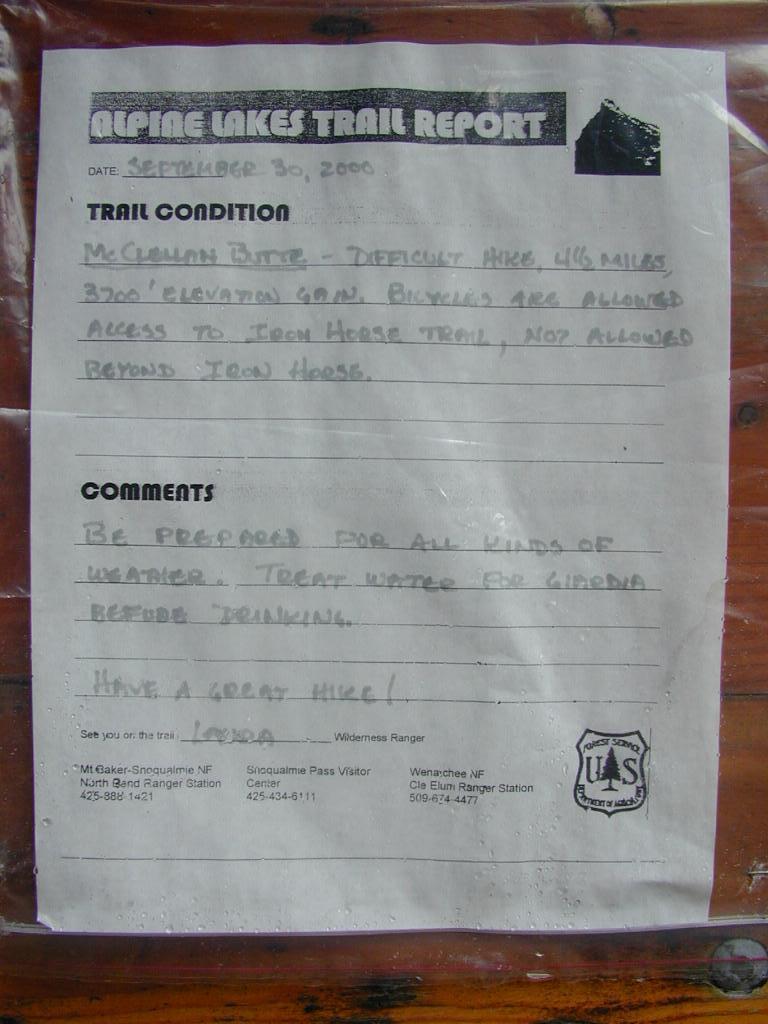 ALPINE LAKES TRAIL REPORT
DATE: SEPTEMBER 30, 2000
TRAIL CONDITION
McCLELLAN BUTTE - DIFFICULT HIKE, 4 1/2 MILES,
3700' ELEVATION GAIN. BICYCLES ARE ALLOWED
ACCESS TO IRON HORSE TRAIL, NOT ALLOWED
BEYOND IRON HORSE.
COMMENTS
BE PREPARED FOR ALL KINDS OF
WEATHER. TREAT WATER FOR GIARDIA
BEFORE DRINKING.
HAVE A GREAT HIKE!
See you on the trail Wilderness Ranger
Mt Baker-Snoqualmie NF
North Bend Ranger Station
425-888-1421
Snoqualmie Pass Visitor
Center
425-434-6111
Wenatchee NF
Cle Elum Ranger Station
509-674-4477
FOREST SERVICE
US
DEPARTMENT OF AGRICULTURE